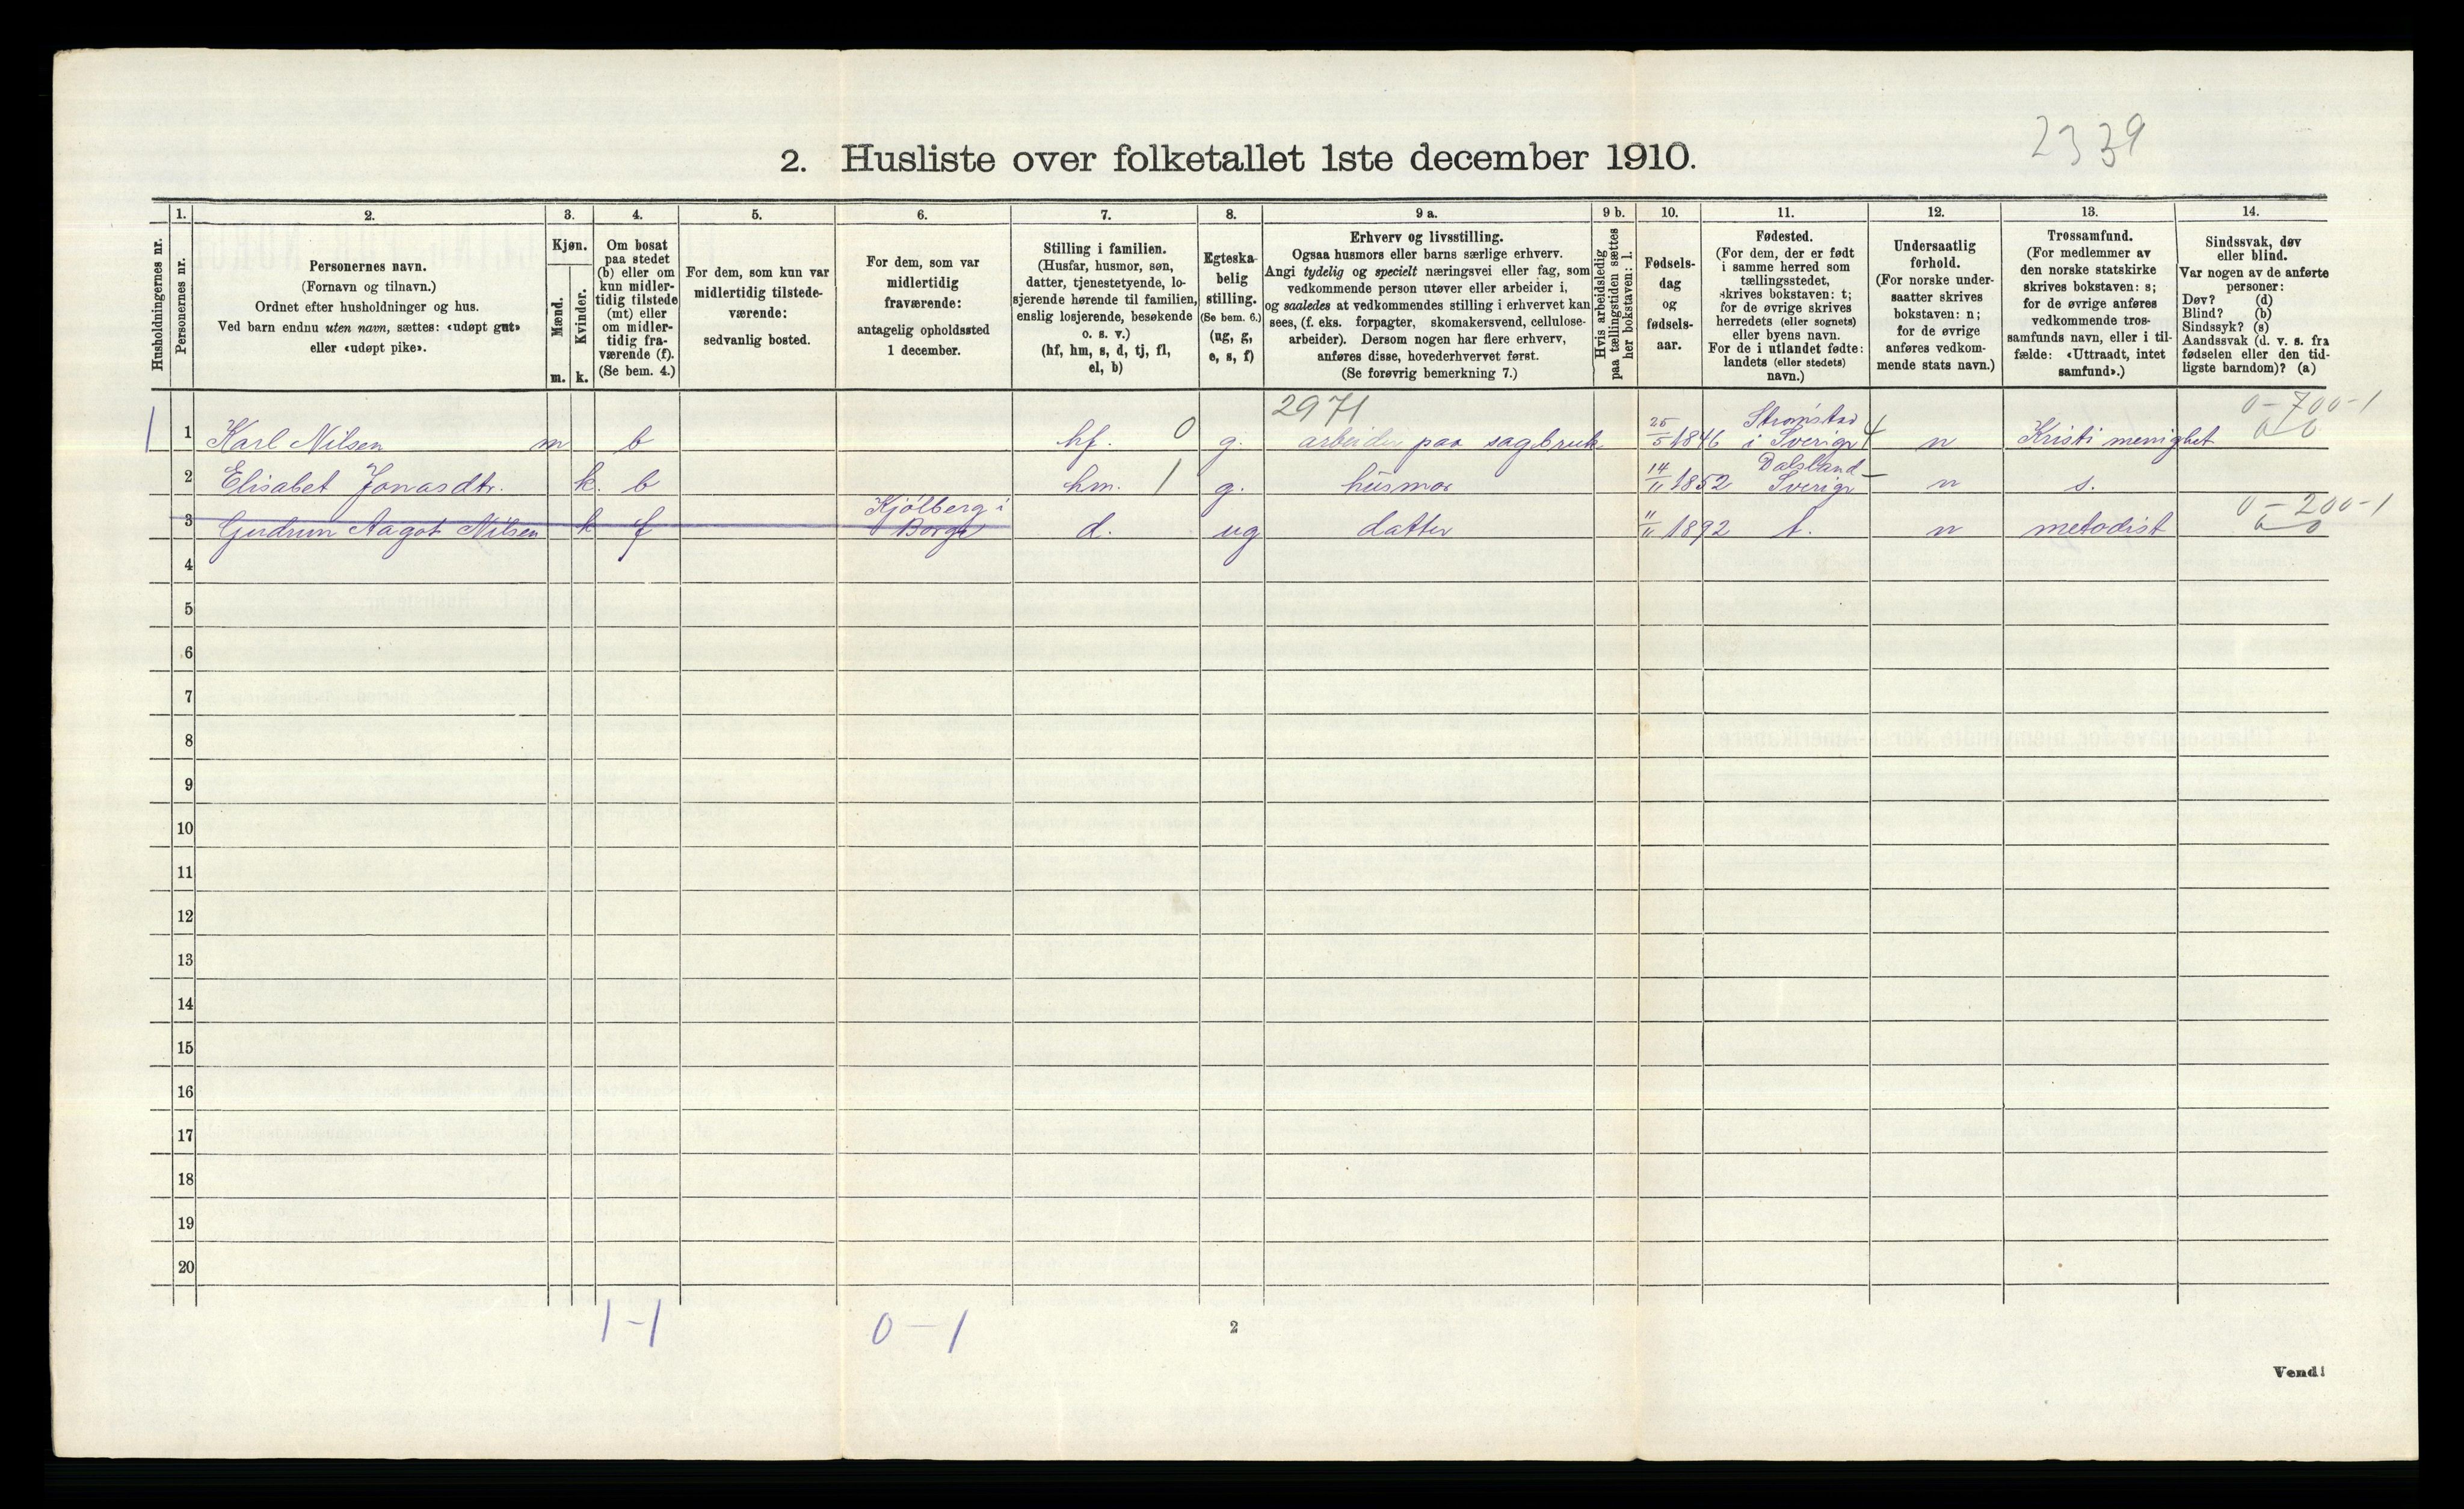 2339
2. Husliste over folketallet 1ste december 1910.
Husholdningernes nr.
1.
Personernes nr.
2.
Personernes navn.
(Fornavn og tilnavn.)
Ordnet efter husholdninger og hus.
Ved barn endnu uten navn, sættes: «udøpt gut»
eller «udøpt pike».
3.
Kjøn.
Mænd.
Kvinder.
m. k.
4.
Om bosat
paa stedet
(b) eller om
kun midler-
tidig tilstede
(mt) eller
om midler-
tidig fra-
værende (f).
(Se bem. 4.)
5.
For dem, som kun var
midlertidig tilstede-
værende:
sedvanlig bosted.
6.
For dem, som var
midlertidig
fraværende:
antagelig opholdssted
1 december.
7.
Stilling i familien.
(Husfar, husmor, søn,
datter, tjenestetyende, lo-
sjerende hørende til familien,
enslig losjerende, besøkende
o. s. v.)
(hf, hm, s, d, tj, fl,
el, b)
8.
Egteska-
belig
stilling.
(Se bem. 6.)
(ug, g,
e, s, f)
9 a.
Erhverv og livsstilling.
Ogsaa husmors eller barns særlige erhverv.
Angi tydelig og specielt næringsvei eller fag, som
vedkommende person utøver eller arbeider i,
og saaledes at vedkommendes stilling i erhvervet kan
sees, (f. eks. forpagter, skomakersvend, cellulose-
arbeider). Dersom nogen har flere erhverv,
anføres disse, hovederhvervet først.
(Se forøvrig bemerkning 7.)
9 b.
Hvis arbeidsledig
paa tællingstiden sættes
her bokstaven: l.
10.
Fødsels-
dag
og
fødsels-
aar.
11.
Fødested.
(For dem, der er født
i samme herred som
tællingsstedet,
skrives bokstaven: t;
for de øvrige skrives
herredets (eller sognets)
eller byens navn.
For de i utlandet fødte:
landets (eller stedets)
navn.)
12.
Undersaatlig
forhold.
(For norske under-
saatter skrives
bokstaven: n;
for de øvrige
anføres vedkom-
mende stats navn.)
13.
Trossamfund.
(For medlemmer av
den norske statskirke
skrives bokstaven: s;
for de øvrige anføres
vedkommende tros-
samfunds navn, eller i til-
fælde: «Uttraadt, intet
samfund».)
14.
Sindssvak, døv
eller blind.
Var nogen av de anførte
personer:
Døv? (d)
Blind? (b)
Sindssyk? (s)
Aandssvak (d. v. s. fra
fødselen eller den tid-
ligste barndom)? (a)
2971 Strømstad 0-700-1
1 1 Karl Nilsen m b hf. 0 g. arbeider paa sagbruk 25/5 1846 i Sverige 4 n Kristi menighet 0 0
Dalsland
2 Elisabet Jonasdtr. k. b hm. 1 g. husmor 14/11 1852 Sverige - n s.
Kjølberg i 0-200-1
3 Gudrun Aagot Nilsen k f Borge d. ug datter 11/11 1892 t. n metodist 0 0
4
5
6
7
8
9
10
11
12
13
14
15
16
17
18
19
20
1-1 0-1
2
Vend!